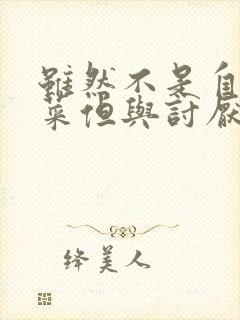 雖然不是自
菜但與討厭
绛美人